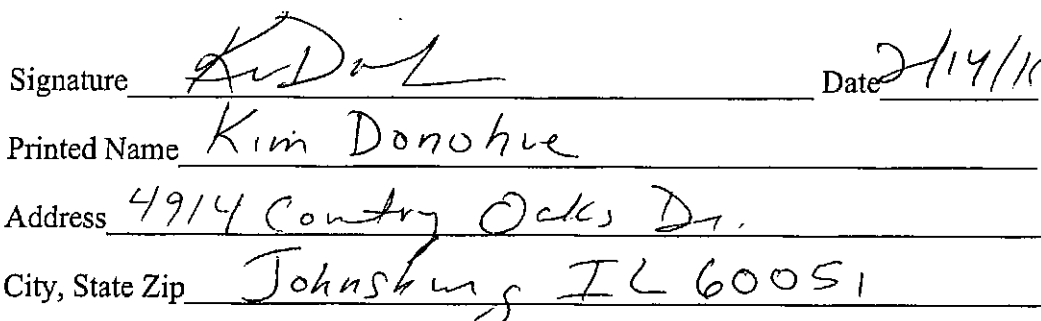 Signature Date 2/14/1
Printed Name Kim Donohue
Address 4914 Country Oaks Dr.
City, State Zip Johnsburg IL 60051